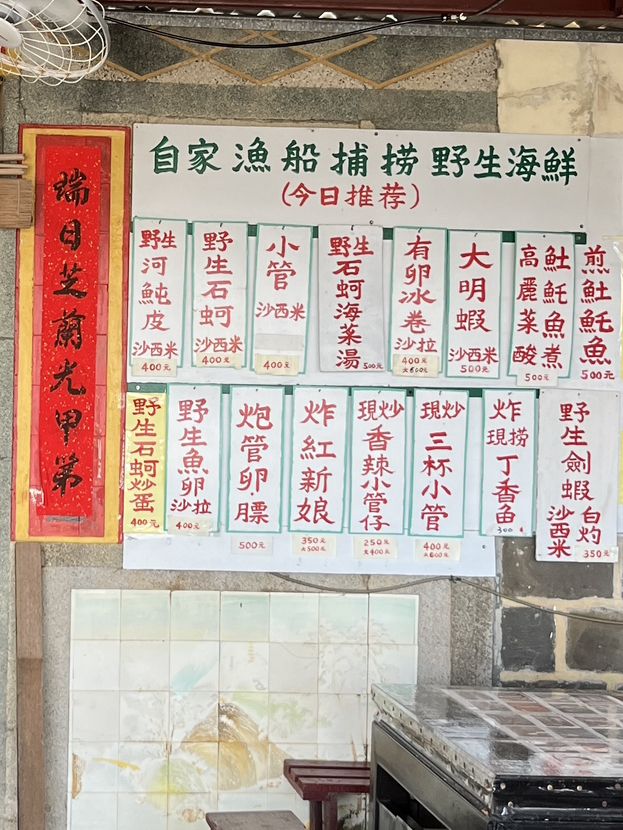 瑞日芝蘭光甲第
自家漁船捕撈野生海鮮
(今日推荐)
野生河魨皮沙西米
400元
野生石蚵沙西米
400元
小管沙西米
400元
野生石蚵海菜湯
500元
有卵冰卷沙拉
400元
大600元
大明蝦沙西米
500元
魟魠魚煮
高麗菜酸
500元
煎魟魠魚
500元
野生石蚵炒蛋
400元
野生魚卵沙拉
400元
炮管卵.膘
500元
炸紅新娘
350元
大500元
現炒香辣小管仔
250元
大400元
現炒三杯小管
400元
大600元
炸現撈丁香魚
300元
野生劍蝦
沙西米
白灼
350元